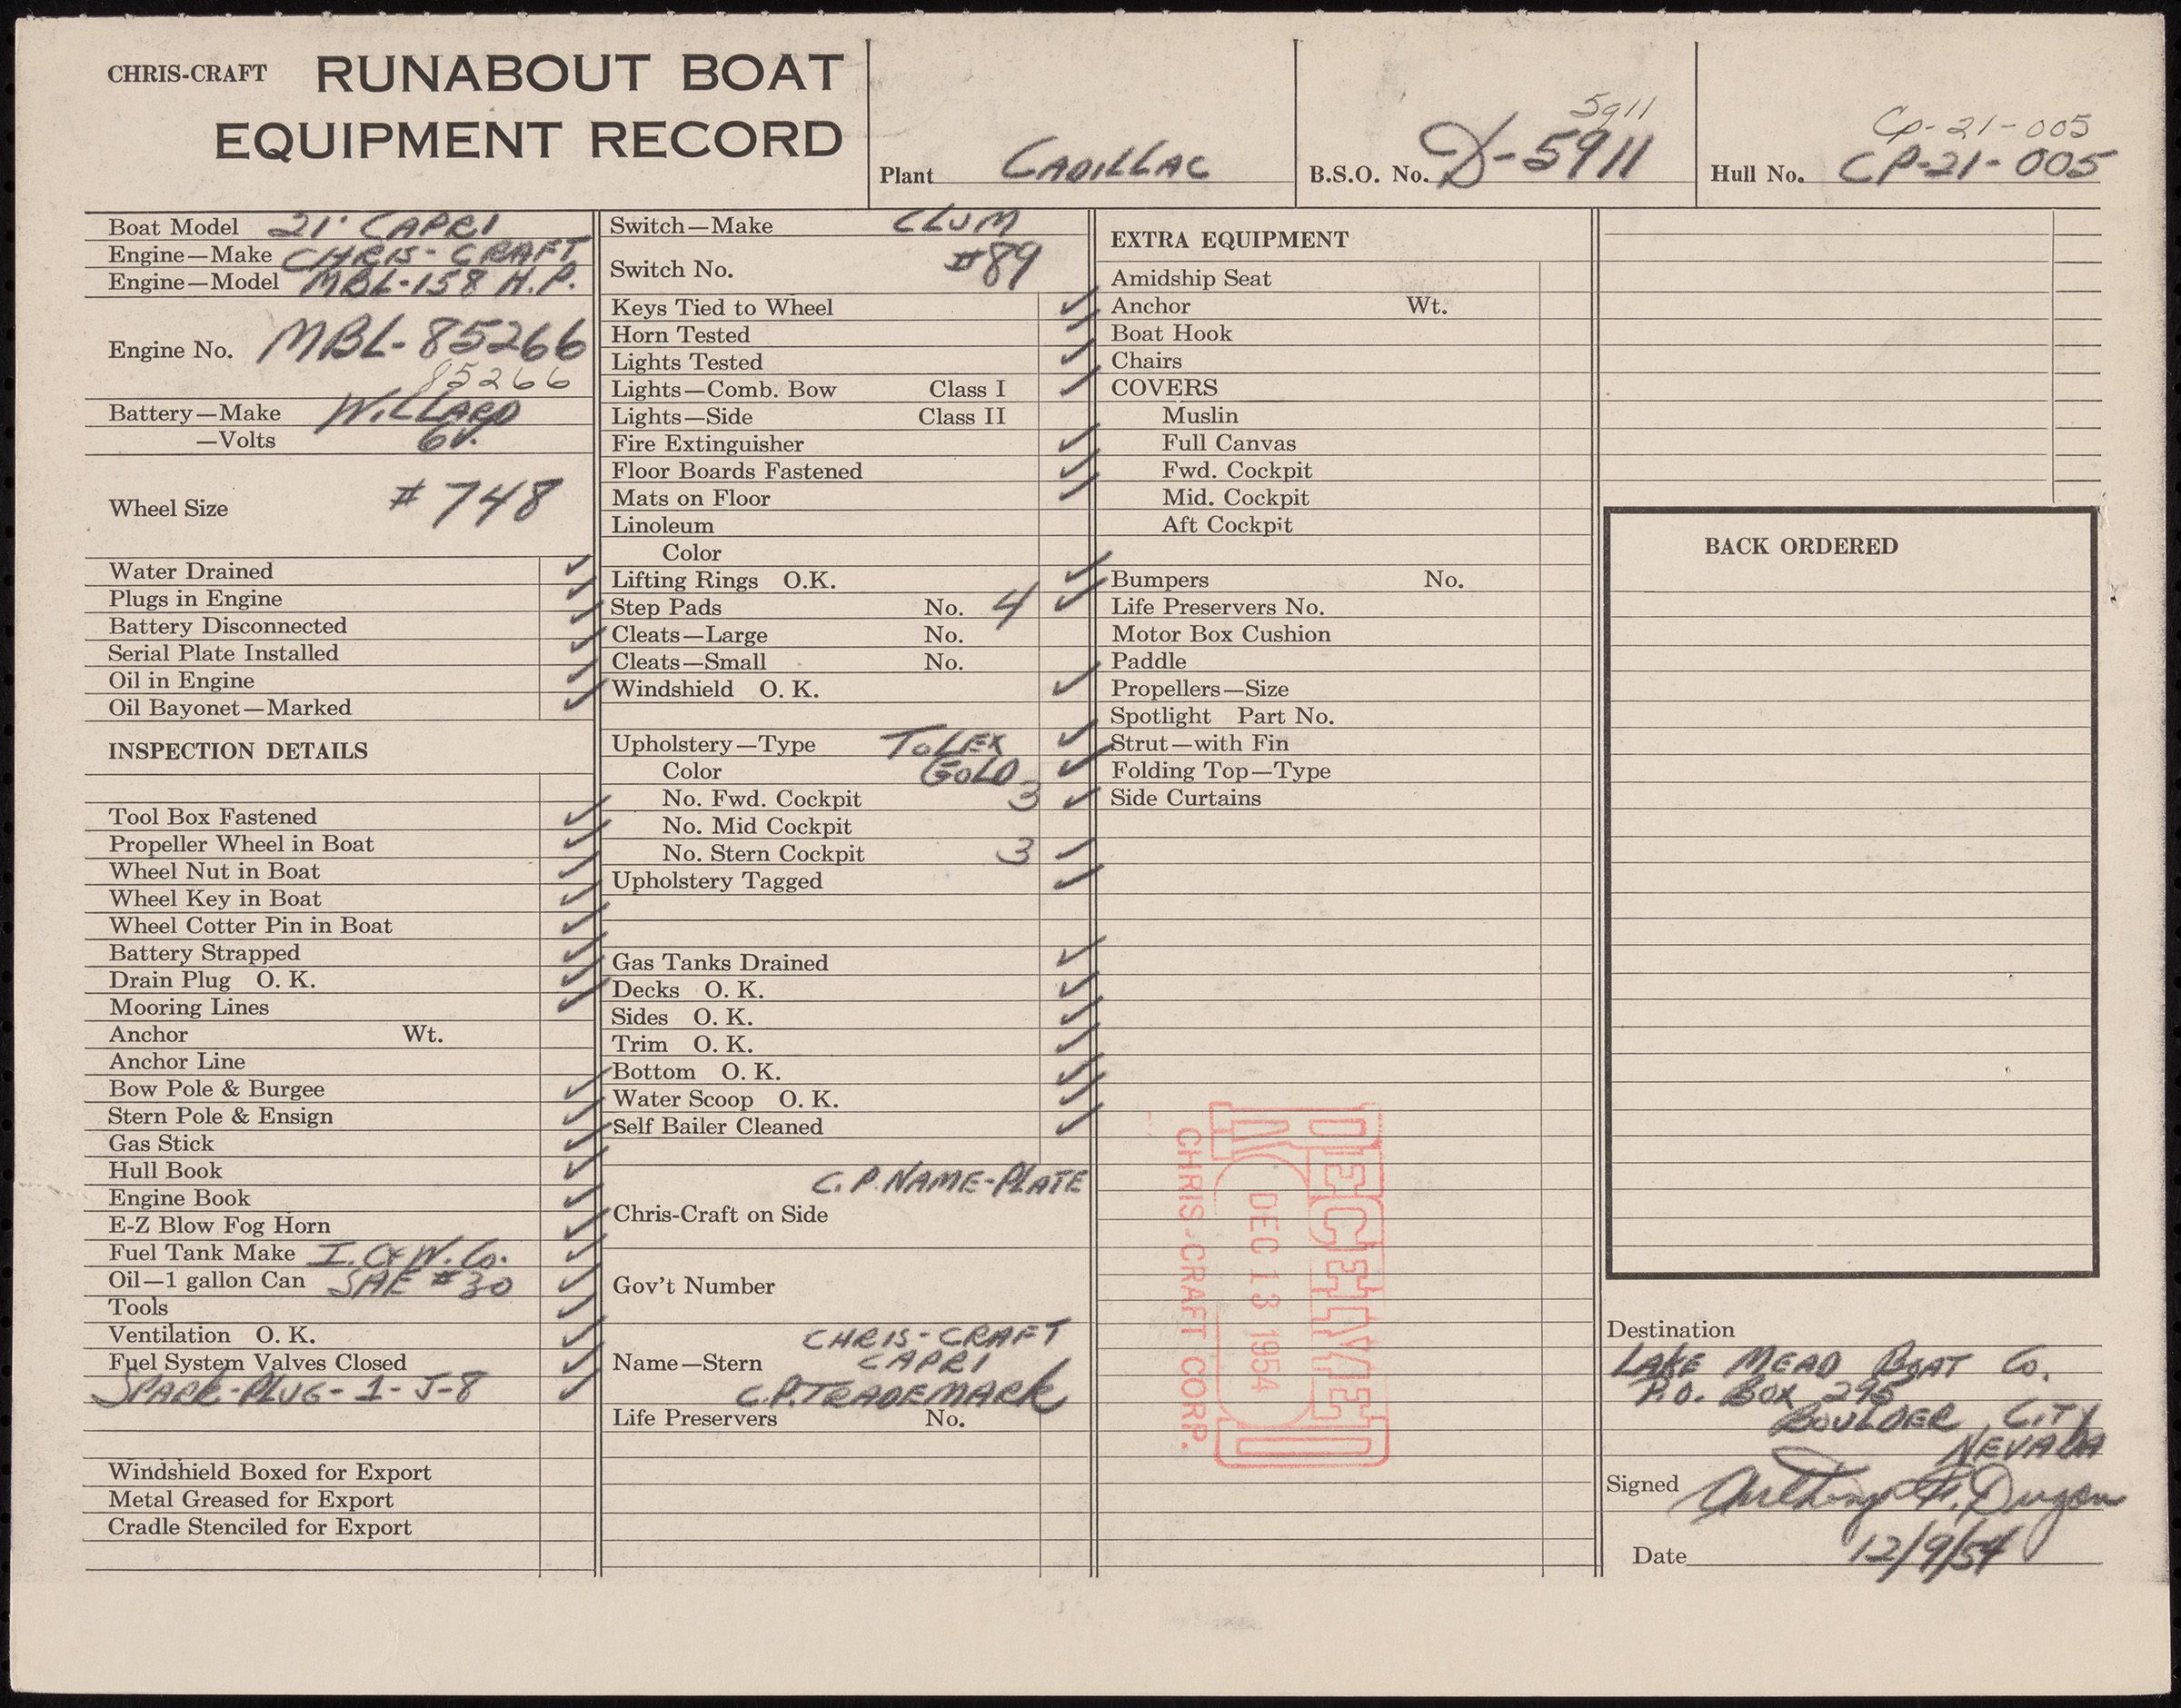 CHRIS-CRAFT RUNABOUT BOAT
EQUIPMENT RECORD
Plant CADILLAC
5911
B.S.O. No. D-5911
Cp-21-005
Hull No. CP-21-005
Boat Model 21' CAPRI
Engine—Make CHRIS-CRAFT
Engine—Model MBL-158 H.P.
Engine No. MBL-85266
85266
Battery—Make WILLARD
—Volts 6V.
Wheel Size #748
Water Drained ✓
Plugs in Engine ✓
Battery Disconnected ✓
Serial Plate Installed ✓
Oil in Engine ✓
Oil Bayonet—Marked ✓
INSPECTION DETAILS
Tool Box Fastened ✓
Propeller Wheel in Boat ✓
Wheel Nut in Boat ✓
Wheel Key in Boat ✓
Wheel Cotter Pin in Boat ✓
Battery Strapped ✓
Drain Plug O. K. ✓
Mooring Lines ✓
Anchor Wt.
Anchor Line
Bow Pole & Burgee ✓
Stern Pole & Ensign ✓
Gas Stick ✓
Hull Book ✓
Engine Book ✓
E-Z Blow Fog Horn ✓
Fuel Tank Make I. C & W. Co. ✓
Oil—1 gallon Can SAE #30 ✓
Tools ✓
Ventilation O. K. ✓
Fuel System Valves Closed ✓
SPARK-PLUG-1-J-8 ✓
Windshield Boxed for Export
Metal Greased for Export
Cradle Stenciled for Export
Switch—Make CLUM
Switch No. #89
Keys Tied to Wheel ✓
Horn Tested ✓
Lights Tested ✓
Lights—Comb. Bow Class I ✓
Lights—Side Class II
Fire Extinguisher ✓
Floor Boards Fastened ✓
Mats on Floor ✓
Linoleum
Color
Lifting Rings O.K. ✓
Step Pads No. 4 ✓
Cleats—Large No.
Cleats—Small No.
Windshield O. K. ✓
Upholstery—Type TOLEX ✓
Color GOLD ✓
No. Fwd. Cockpit 3 ✓
No. Mid Cockpit
No. Stern Cockpit 3 ✓
Upholstery Tagged ✓
Gas Tanks Drained ✓
Decks O. K. ✓
Sides O. K. ✓
Trim O. K. ✓
Bottom O. K. ✓
Water Scoop O. K. ✓
Self Bailer Cleaned ✓
C.P. NAME-PLATE
Chris-Craft on Side
Gov't Number
CHRIS-CRAFT
Name—Stern CAPRI
C.P. TRADEMARK
Life Preservers No.
EXTRA EQUIPMENT
Amidship Seat
Anchor Wt.
Boat Hook
Chairs
COVERS
Muslin
Full Canvas
Fwd. Cockpit
Mid. Cockpit
Aft Cockpit
Bumpers No.
Life Preservers No.
Motor Box Cushion
Paddle
Propellers—Size
Spotlight Part No.
Strut—with Fin
Folding Top—Type
Side Curtains
RECEIVED
DEC 13 1954
CHRIS-CRAFT CORP.
BACK ORDERED
Destination
LAKE MEAD BOAT CO.
P.O. BOX 295
BOULDER CITY
NEVADA
Signed Anthony F. Dugan
Date 12/9/54